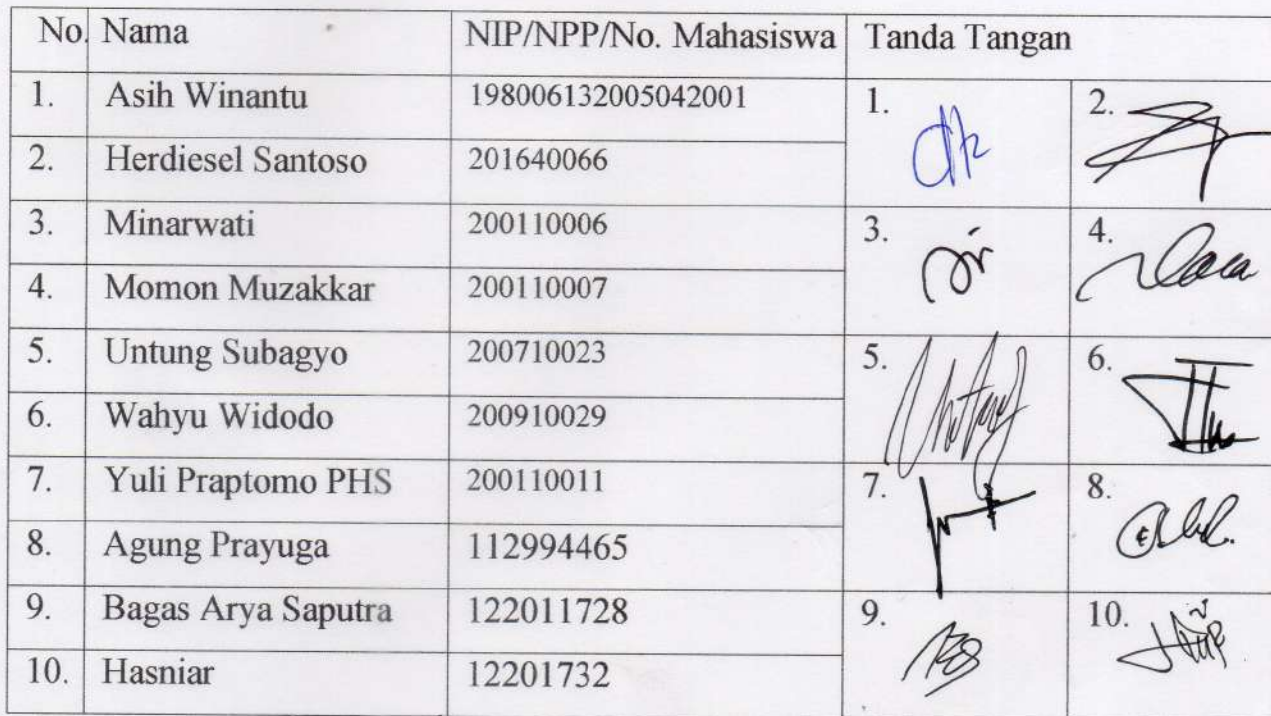 No. Nama NIP/NPP/No. Mahasiswa Tanda Tangan
1. Asih Winantu 198006132005042001 1. 2.
2. Herdiesel Santoso 201640066
3. Minarwati 200110006 3. 4.
4. Momon Muzakkar 200110007
5. Untung Subagyo 200710023 5. 6.
6. Wahyu Widodo 200910029
7. Yuli Praptomo PHS 200110011 7. 8.
8. Agung Prayuga 112994465
9. Bagas Arya Saputra 122011728 9. 10.
10. Hasniar 12201732